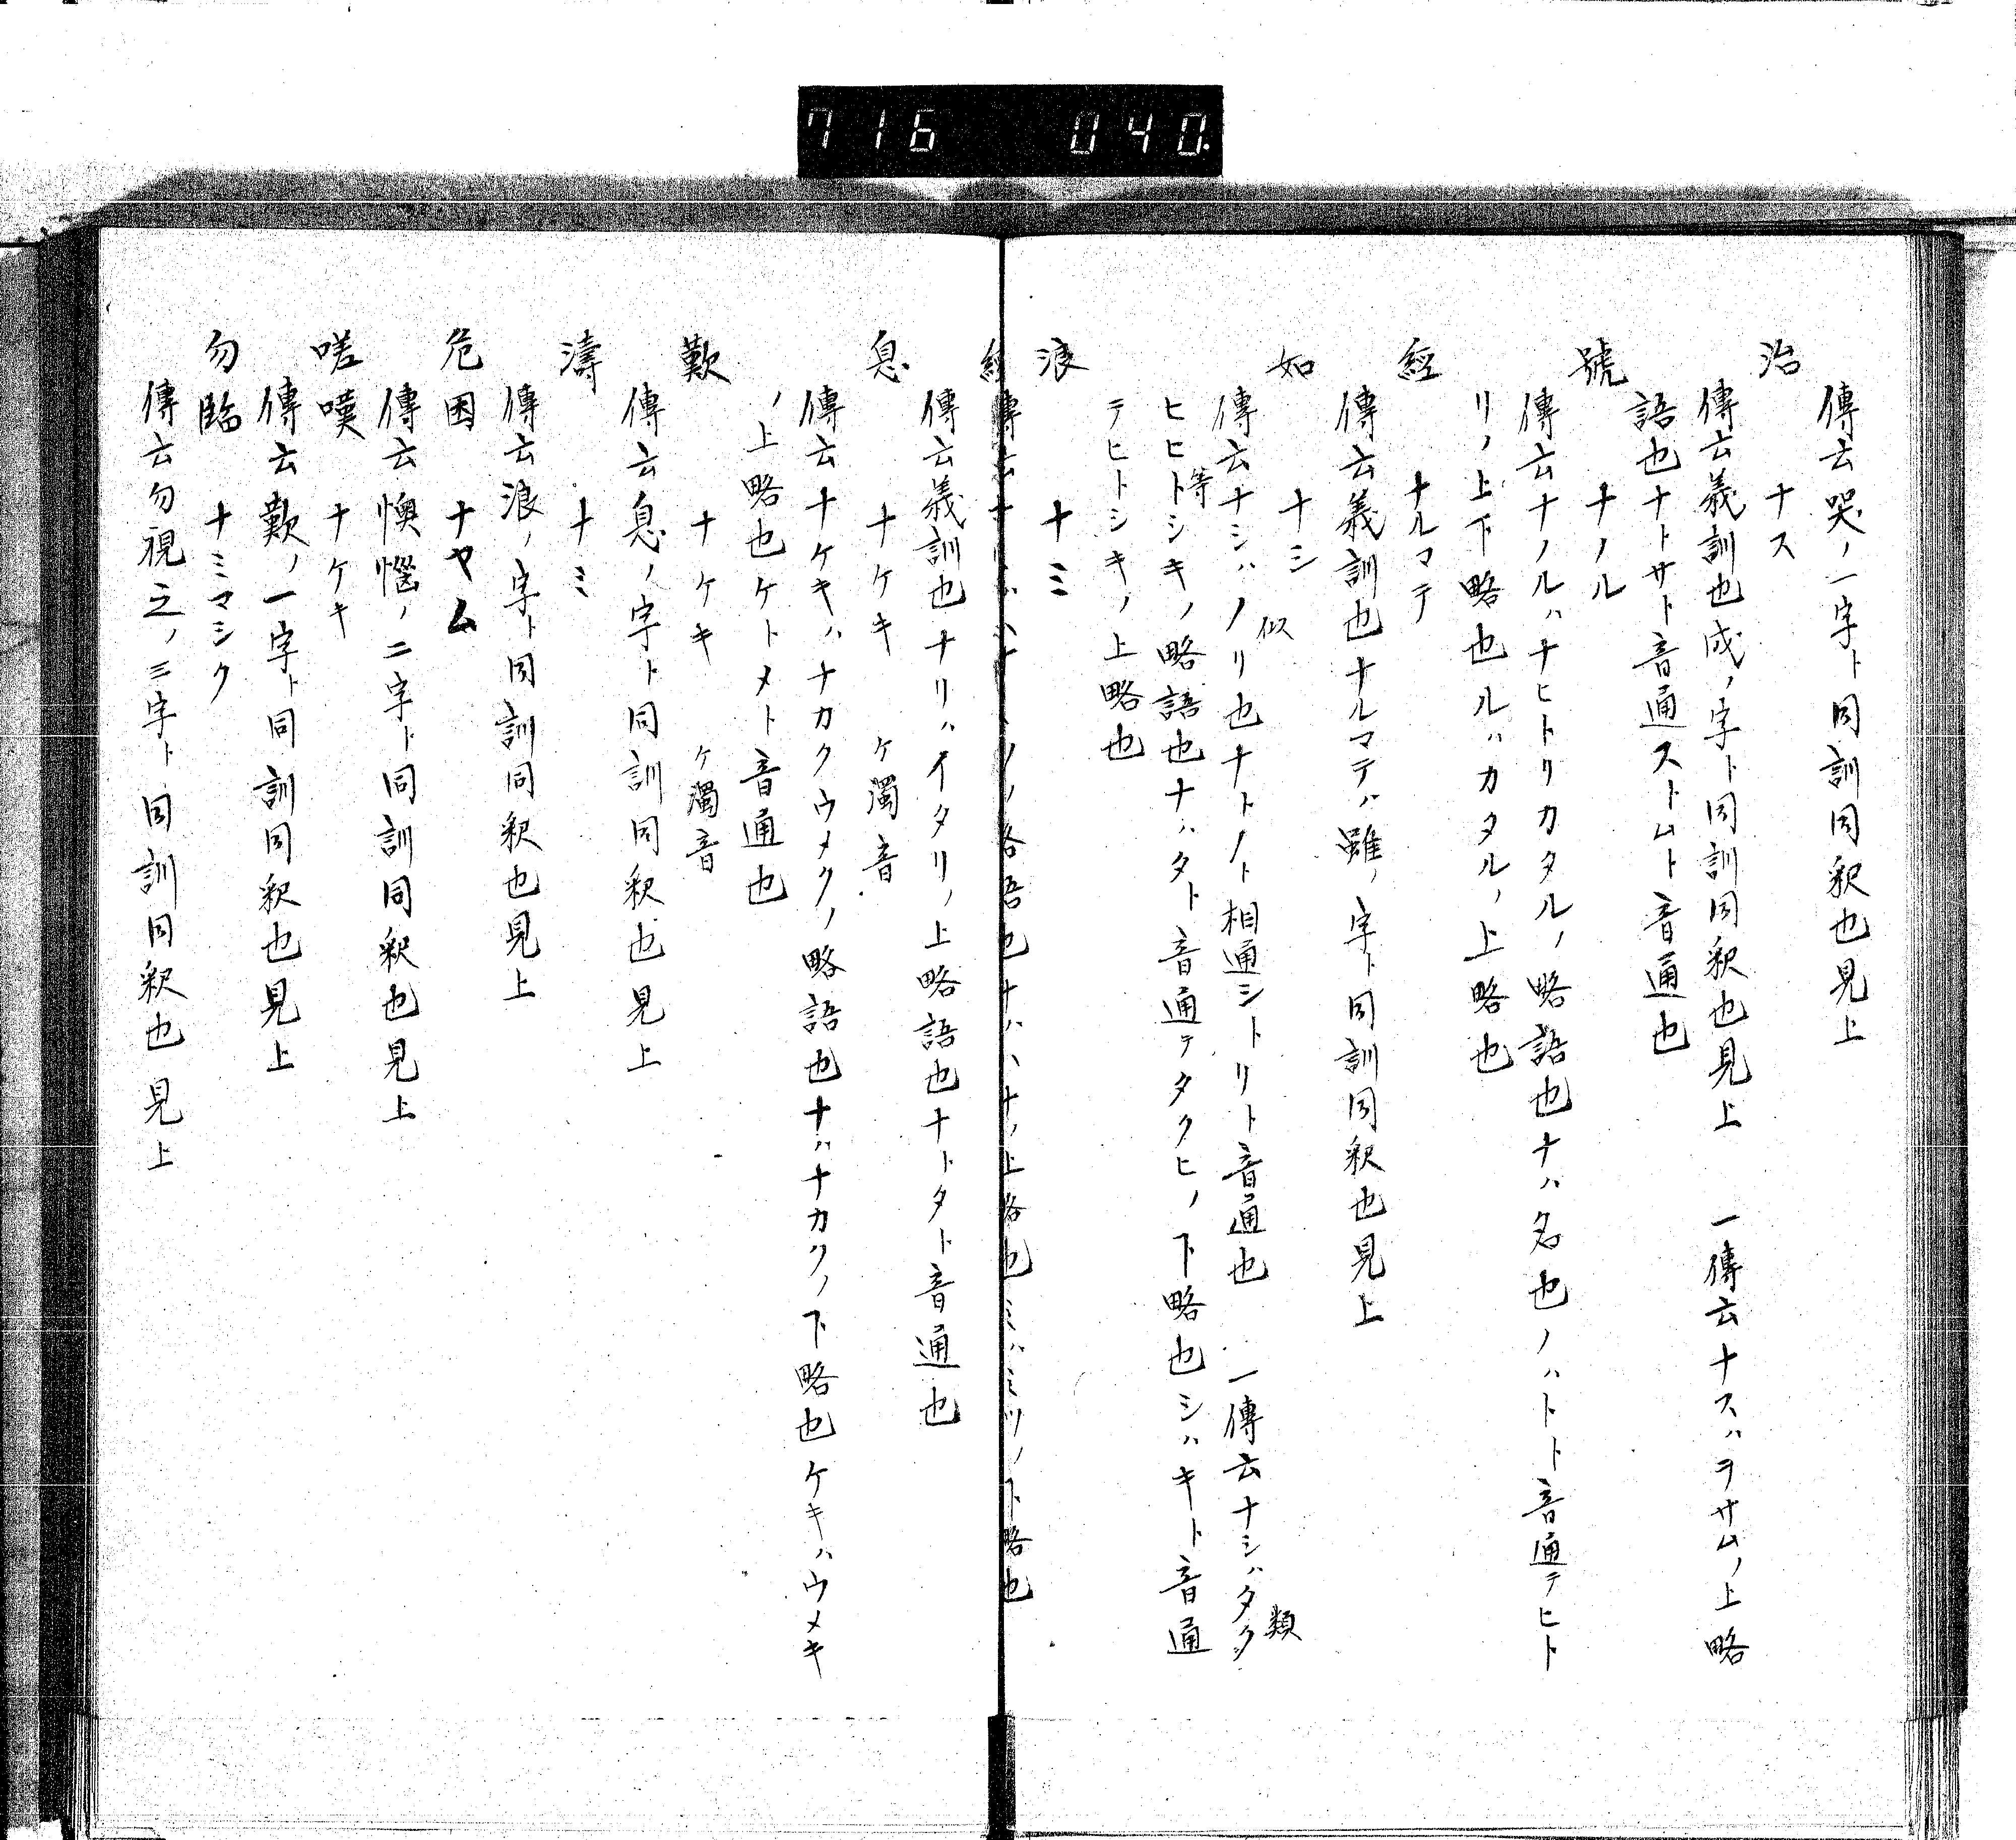 716 040.
傳云哭ノ一字ト同訓同釈也見上
治 ナス
傳云義訓也成ノ字ト同訓同釈也見上 一傳云ナスハヲサムノ上略
語也ナトサト音通ストムト音通也
號 ナノル
傳云ナノルハナヒトリカタルノ略語也ナハ名也ノハトト音通テヒト
リノ上下略也ルハカタルノ上略也
經 ナルマテ
傳云義訓也ナルマテハ雖ノ字ト同訓同釈也見上
如 ナシ
傳云ナシハノリ也ナトノト相通シトリト音通也 一傳云ナシハタク
似
類
ヒヒトシキノ略語也ナハタト音通テタクヒノ下略也シハキト音通
等
テヒトシキノ上略也
浪 ナミ
略語也ナハハナノ上略也ミハミツノ下略也
傳云義訓也ナリハイタリノ上略語也ナトタト音通也
息 ナケキ ケ濁音
傳云ナケキハナカクウメクノ略語也ナハナカクノ下略也ケキハウメキ
ノ上略也ケトメト音通也
歎 ナケキ ケ濁音
傳云息ノ字ト同訓同釈也見上
濤 ナミ
傳云浪ノ字ト同訓同釈也見上
危困 ナヤム
傳云懊惱ノ二字ト同訓同釈也見上
嗟嘆 ナケキ
傳云歎ノ一字ト同訓同釈也見上
勿臨 ナミマシク
傳云勿視之ノ三字ト同訓同釈也見上